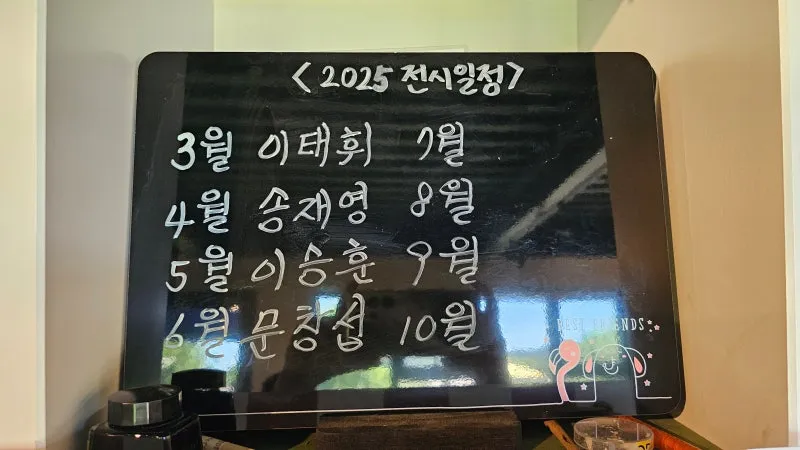 < 2025 전시일정 >
3월 이태휘 7월
4월 송재영 8월
5월 이승훈 9월
6월 문창섭 10월
BEST FRIENDS